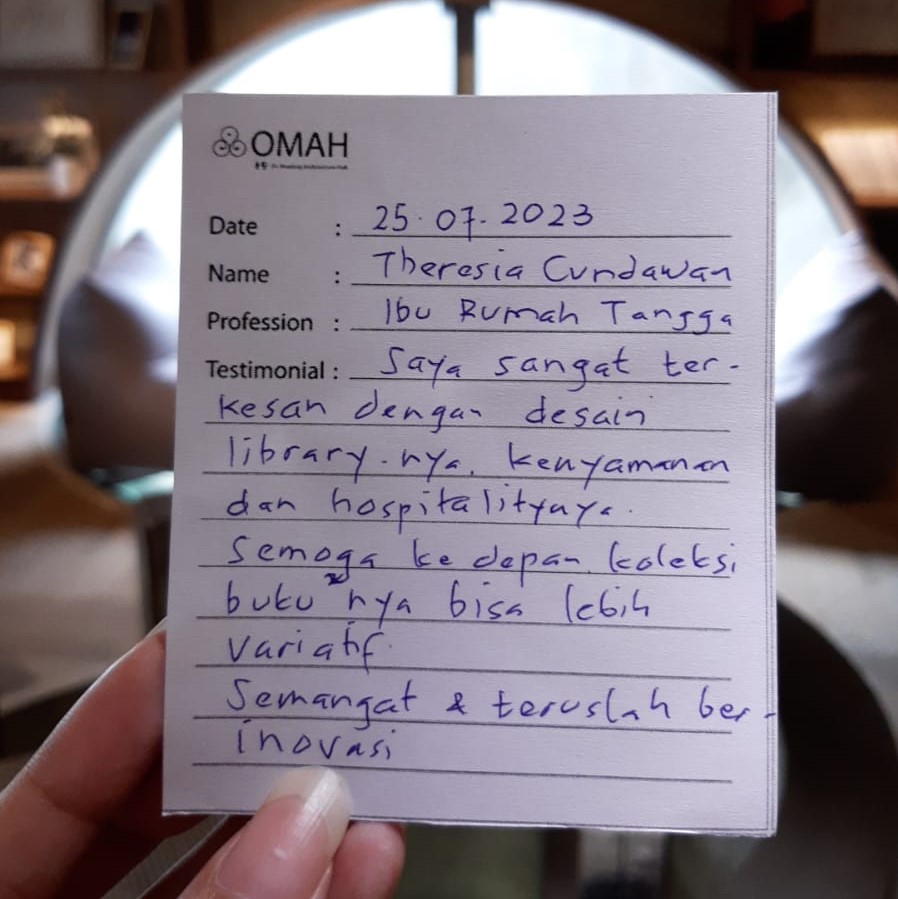 OMAH
Date : 25.07.2023
Name : Theresia Cundawan
Profession : Ibu Rumah Tangga
Testimonial : Saya sangat ter-
kesan dengan desain
library.nya, kenyamanan
dan hospitalitynya.
Semoga ke depan koleksi
buku2nya bisa lebih
variatif.
Semangat & teruslah ber-
inovasi